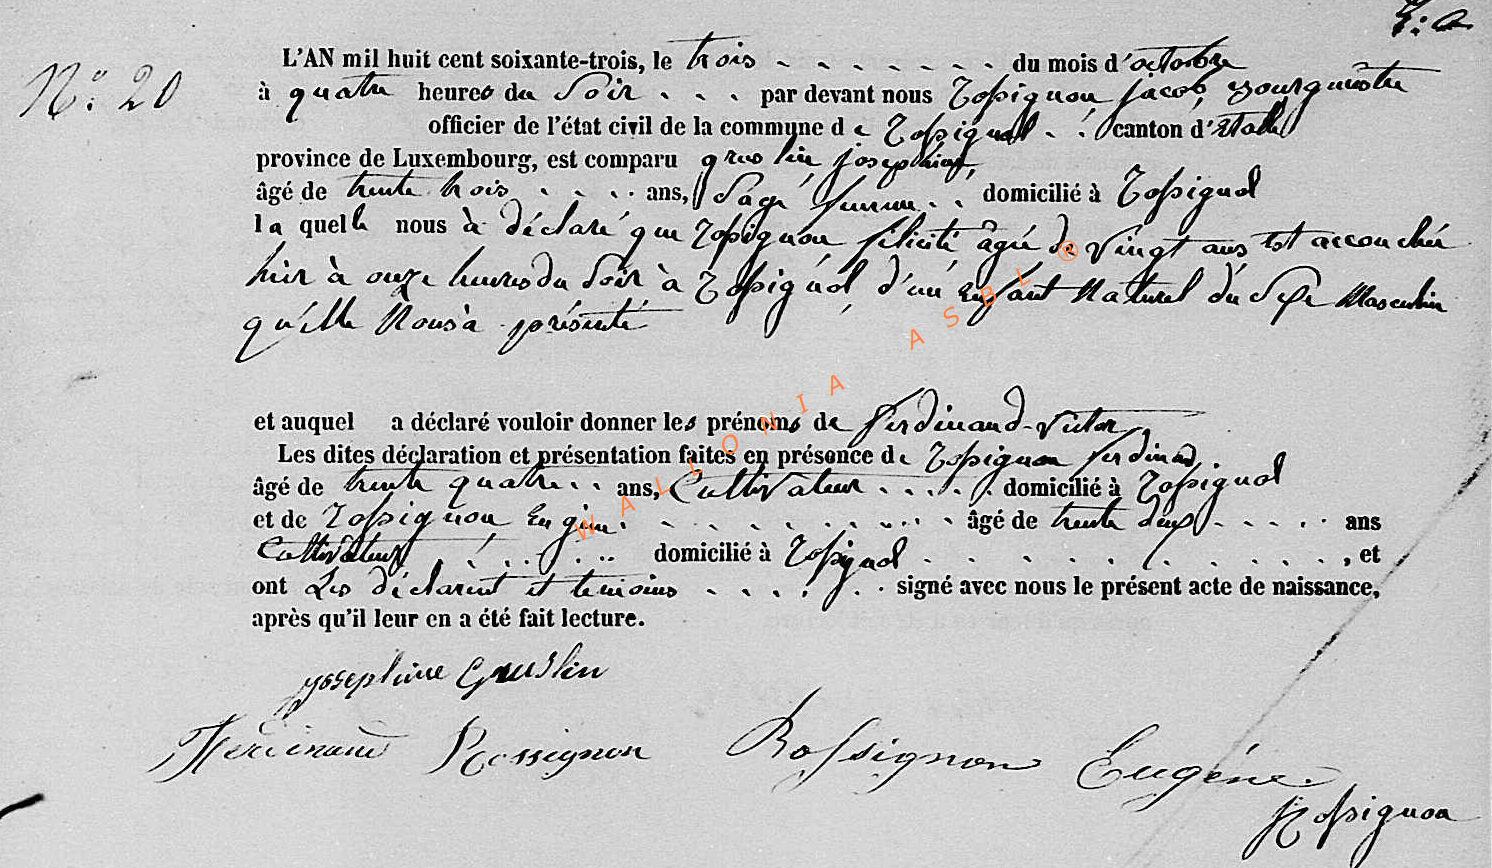 N° 20
L'AN mil huit cent soixante-trois, le trois du mois d'octobre
à quatre heures du soir par devant nous Rossignon jacob, Bourgmestre
officier de l'état civil de la commune de Rossignol canton d'Etalle
province de Luxembourg, est comparu Greslin josephine,
âgé de trente trois ans, Sage femme domicilié à Rossignol
laquelle nous à déclaré que Rossignon félicité, âgée de vingt ans est accouchée
hier à onze heures du Soir à Rossignol, d'un enfant Naturel du Sexe Masculin
qu'elle Nous à présenté
et auquel a déclaré vouloir donner les prénoms de Ferdinand-Victor
Les dites déclaration et présentation faites en présence de Rossignon ferdinand
âgé de trente quatre ans, Cultivateur domicilié à Rossignol
et de Rossignon Eugène âgé de trente deux ans
Cultivateur domicilié à Rossignol, et
ont Les déclarent et temoins signé avec nous le présent acte de naissance,
après qu'il leur en a été fait lecture.
josephine Greslin
Ferdinand Rossignon Rossignon Eugéne
Rossignon
WALLONIA ASBL ®